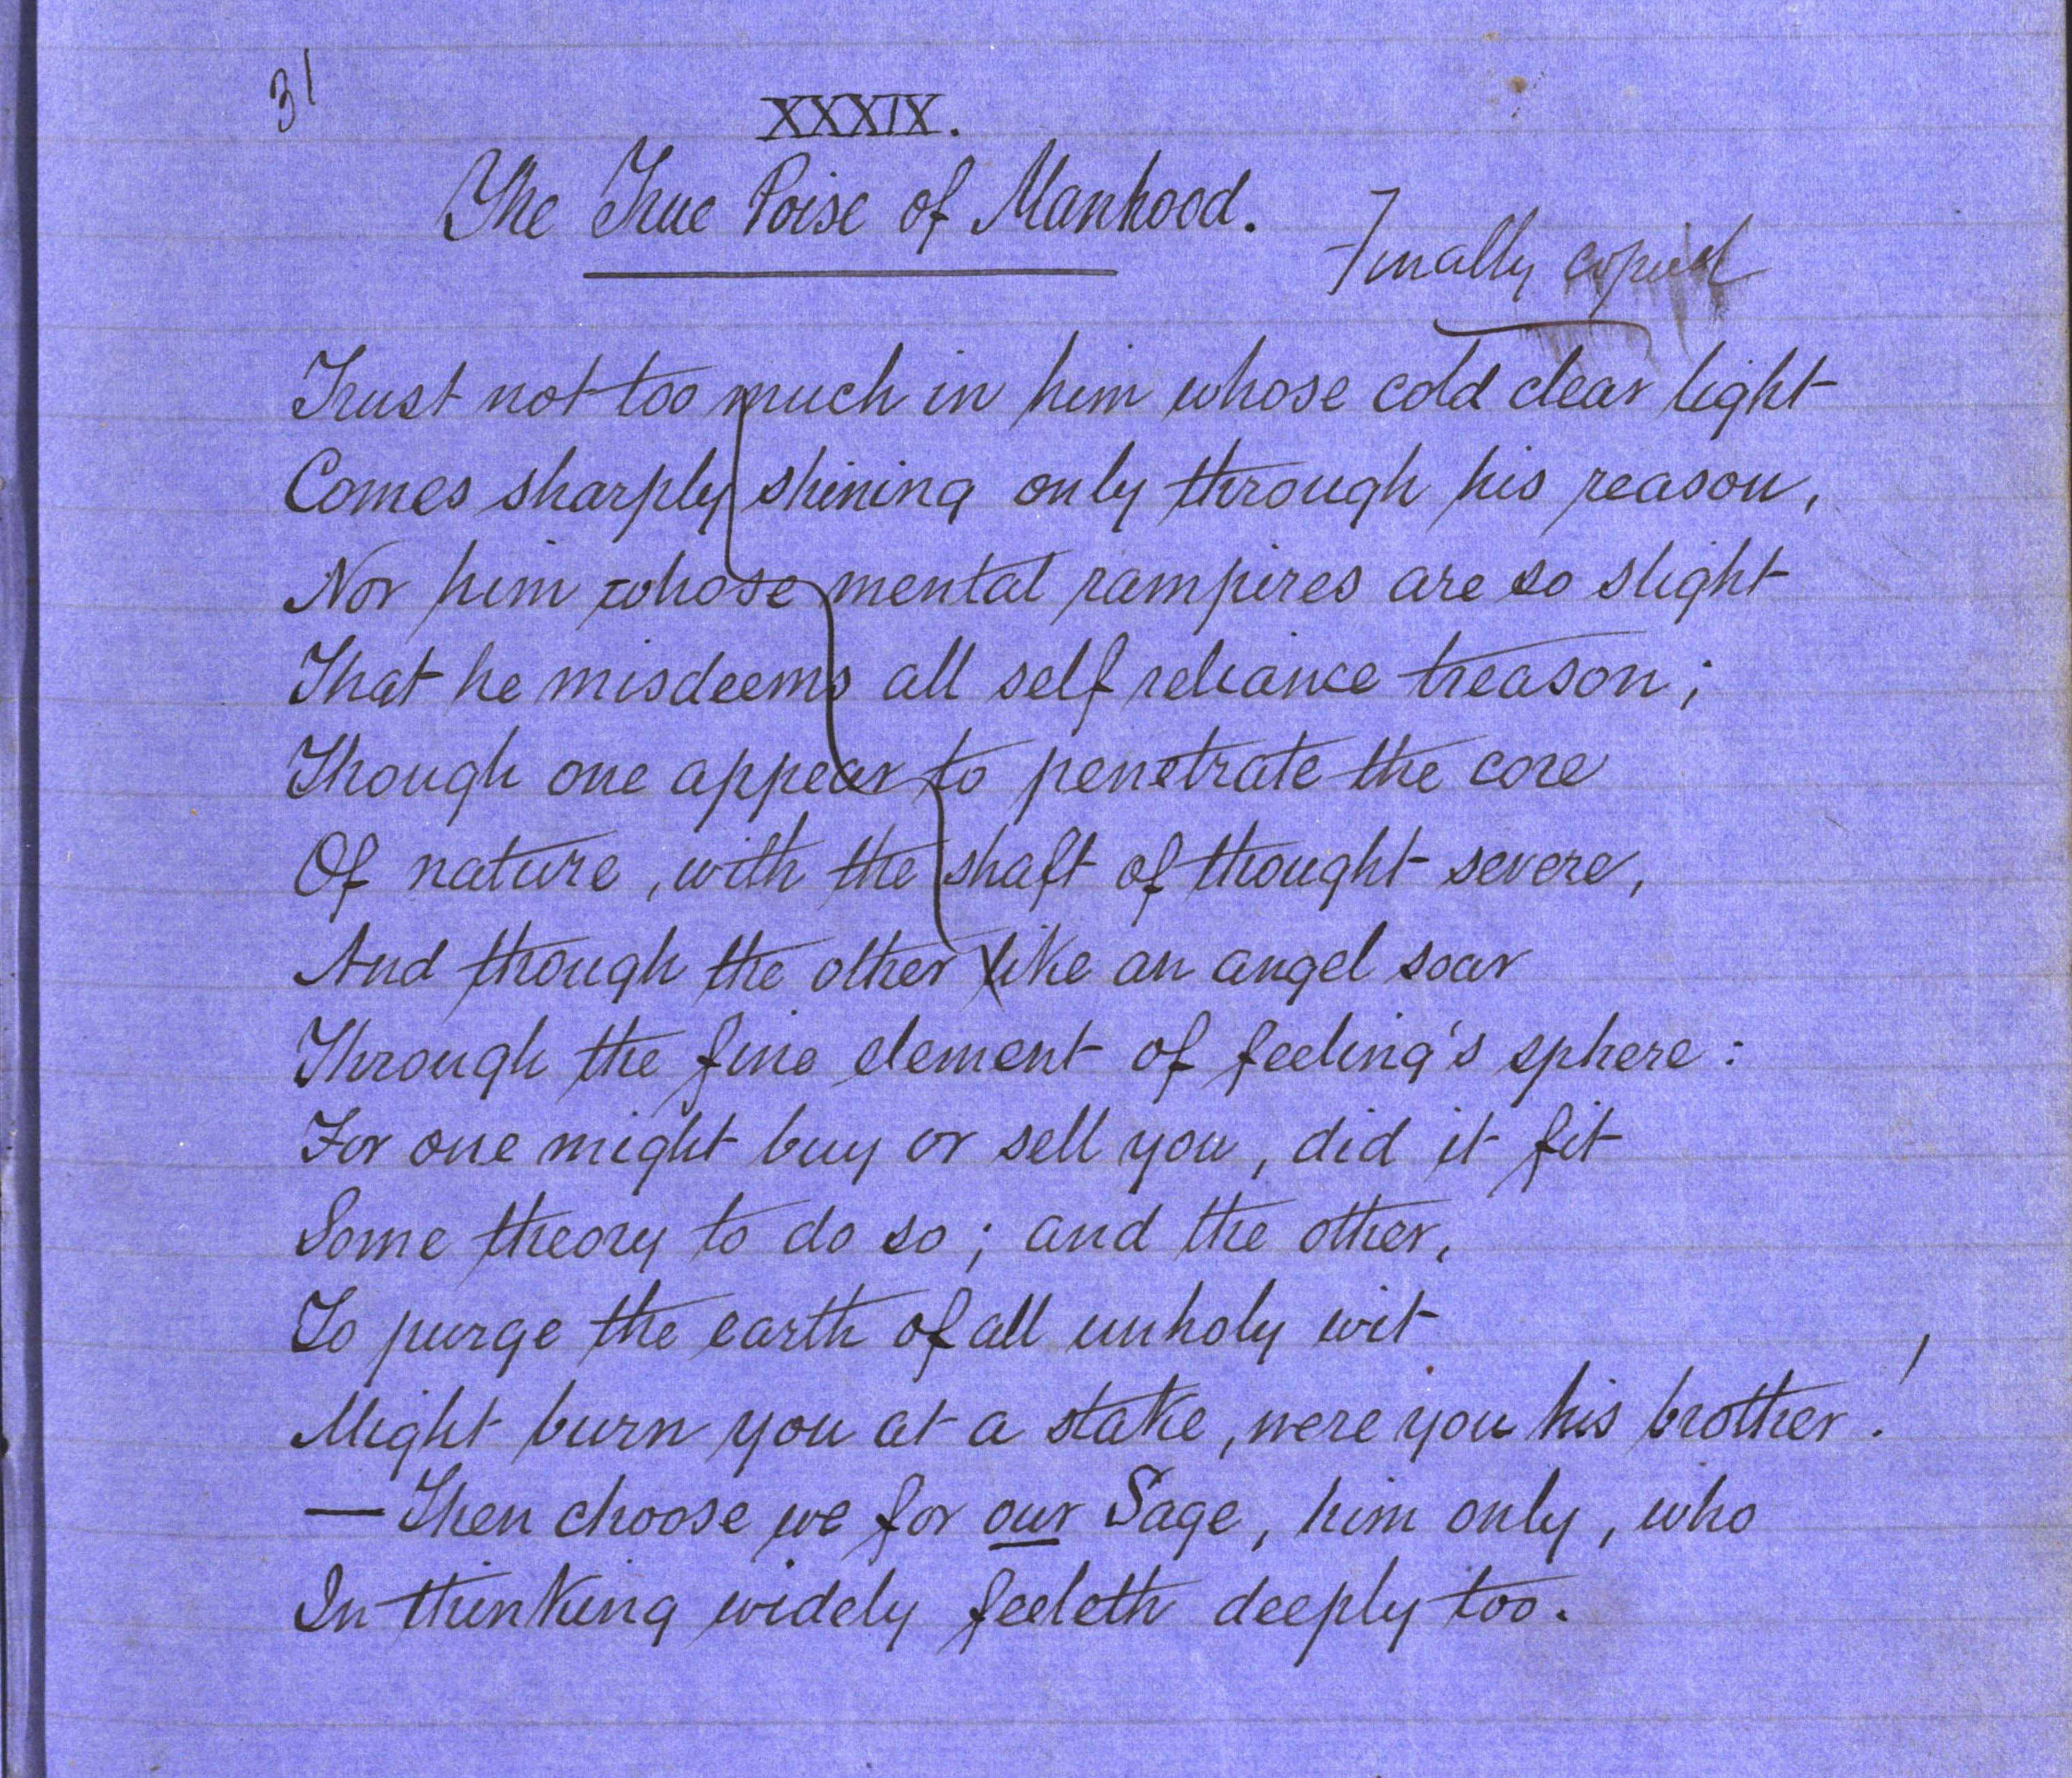 31
XXXIX.
The True Poise of Manhood.
Finally copied
Trust not too much in him whose cold clear light
Comes sharply shining only through his reason,
Nor him whose mental rampires are so slight
That he misdeems all self reliance treason;
Though one appear to penetrate the core
Of nature, with the shaft of thought severe,
And though the other like an angel soar
Through the fine element of feeling's sphere:
For one might buy or sell you, did it fit
Some theory to do so; and the other,
To purge the earth of all unholy wit
Might burn you at a stake, were you his brother!
— Then choose we for our Sage, him only, who
In thinking widely feeleth deeply too.